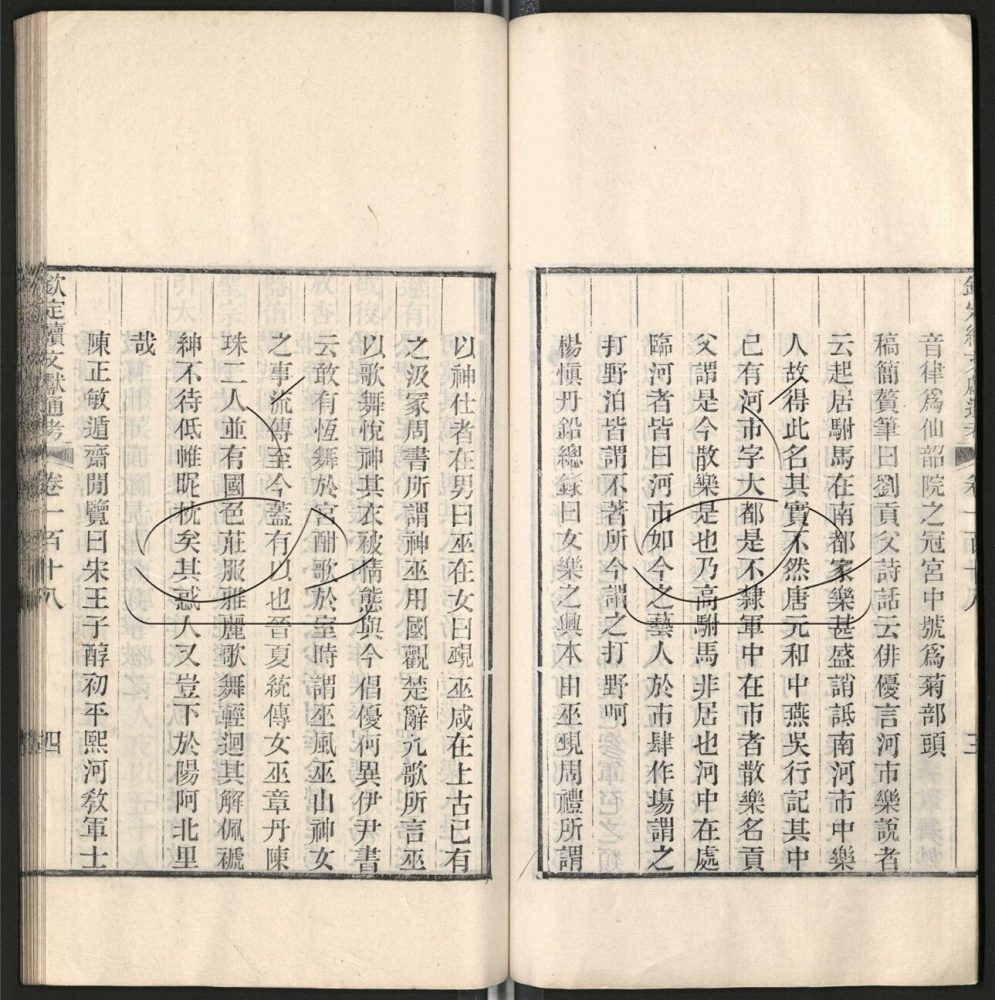 音律爲仙韶院之冠宮中號爲菊部頭
稿簡贅筆曰劉貢父詩話云俳優言河市樂說者
云起居駙馬在南都家樂甚盛誚詆南河市中樂
人故得此名其實不然唐元和中燕吳行記其中
已有河市字大都是不隸軍中在市者散樂名貢
父謂是今散樂是也乃高駙馬非居也河中在處
臨河者皆曰河市如今之藝人於市肆作塲謂之
打野泊皆謂不著所今謂之打野呵
楊愼丹鉛總錄曰女樂之興本由巫覡周禮所謂
以神仕者在男曰巫在女曰覡巫咸在上古已有
之汲冢周書所謂神巫用國觀楚辭九歌所言巫
以歌舞悅神其衣被情態與今倡優何異伊尹書
云敢有恆舞於宮酣歌於室時謂巫風巫山神女
之事流傳至今蓋有以也晉夏統傳女巫章丹陳
珠二人並有國色莊服雅麗歌舞輕迴其解佩褫
紳不待低帷昵枕矣其惑人又豈下於陽阿北里
哉
陳正敏遁齋閒覽曰宋王子醇初平熙河敎軍士
欽定續文獻通考 卷一百十八 四